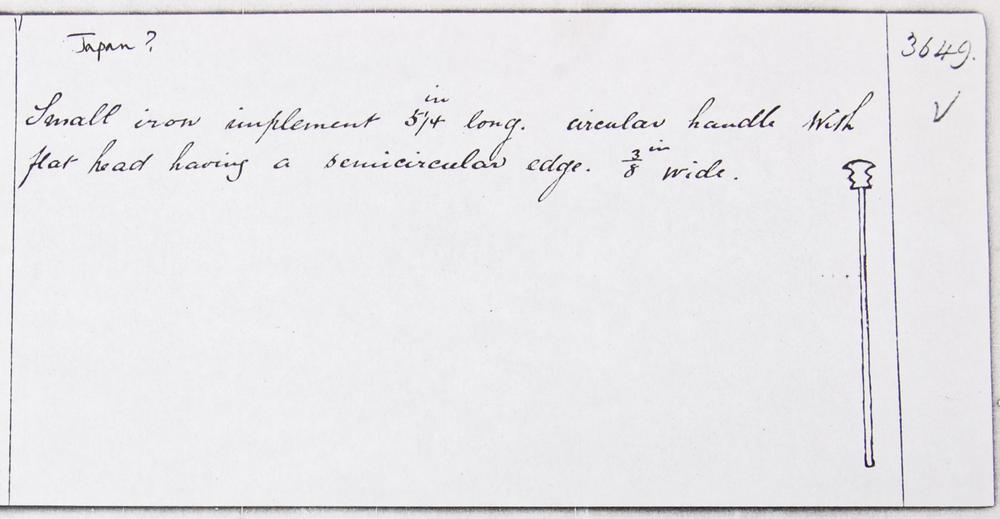 Japan?
3649.
Small iron implement 5 1/4 in long. circular handle with
flat head having a semicircular edge. 3/8 in wide.